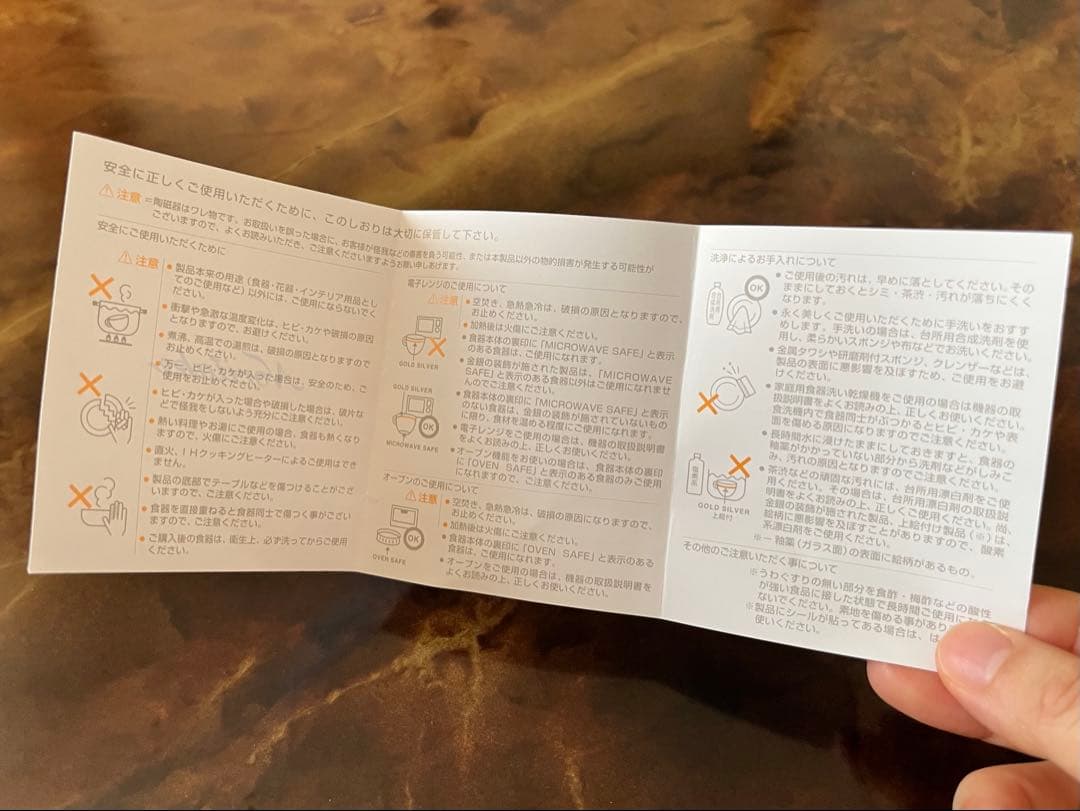 安全に正しくご使用いただくために、このしおりは大切に保管して下さい。
⚠注意 =陶磁器はワレ物です。お取扱いを誤った場合に、お客様が怪我などの傷害を負う可能性、または本製品以外の物的損害が発生する可能性が
ございますので、よくお読みいただき、ご注意くださいますようお願い申しあげます。
安全にご使用いただくために
⚠注意
●製品本来の用途(食器・花器・インテリア用品とし
てのご使用など)以外には、ご使用にならないでく
ださい。
●衝撃や急激な温度変化は、ヒビ・カケや破損の原因
となりますので、お避けください。
●煮沸、高温での湯煎は、破損の原因となりますので
お止めください。
●万一、ヒビ・カケが入った場合は、安全のため、ご
使用をお止めください。
●ヒビ・カケが入った場合や破損した場合は、破片な
どで怪我をしないよう充分にご注意ください。
●熱い料理やお湯にご使用の場合、食器も熱くなり
ますので、火傷にご注意ください。
●直火、IHクッキングヒーターによるご使用はでき
ません。
●製品の底部でテーブルなどを傷つけることがござ
いますので、ご注意ください。
●食器を直接重ねると食器同士で傷つく事がござい
ますので、ご注意ください。
●ご購入後の食器は、衛生上、必ず洗ってからご使用
ください。
電子レンジのご使用について
⚠注意
GOLD SILVER
GOLD SILVER
OK
MICROWAVE SAFE
●空焚き、急熱急冷は、破損の原因となりますので、
お止めください。
●加熱後は火傷にご注意ください。
●食器本体の裏印に「MICROWAVE SAFE」と表示
のある食器は、ご使用になれます。
●金銀の装飾が施された製品は、「MICROWAVE
SAFE」と表示のある食器以外はご使用になれませ
んのでご注意ください。
●食器本体の裏印に「MICROWAVE SAFE」と表示
のない食器は、金銀の装飾が施されていないもの
に限り、食材を温める程度にご使用になれます。
●電子レンジをご使用の場合は、機器の取扱説明書
をよくお読みの上、正しくお使いください。
●オーブン機能をお使いの場合は、食器本体の裏印
に「OVEN SAFE」と表示のある食器のみご使用
になれますので、ご注意ください。
オーブンのご使用について
⚠注意
OK
OVEN SAFE
●空焚き、急熱急冷は、破損の原因になりますので、
お止めください。
●加熱後は火傷にご注意ください。
●食器本体の裏印に「OVEN SAFE」と表示のある
食器は、ご使用になれます。
●オーブンをご使用の場合は、機器の取扱説明書を
よくお読みの上、正しくお使いください。
洗浄によるお手入れについて
OK
●ご使用後の汚れは、早めに落としてください。その
ままにしておくとシミ・茶渋・汚れが落ちにくく
なります。
●永く美しくご使用いただくために手洗いをおすす
めします。手洗いの場合は、台所用合成洗剤を使
用し、柔らかいスポンジや布などでお洗いください。
●金属タワシや研磨剤付スポンジ、クレンザーなどは、
製品の表面に悪影響を及ぼすため、ご使用をお避
けください。
●家庭用食器洗い乾燥機をご使用の場合は機器の取
扱説明書をよくお読みの上、正しくお使いください。
食洗機内で食器同士がぶつかるとヒビ・カケや表
面を傷める原因となりますのでご注意ください。
●長時間水に浸けたままにしておきますと、食器の
釉薬がかかっていない部分から洗剤などがしみこ
み、汚れの原因となりますのでご注意ください。
塩素系
GOLD SILVER
上絵付
●茶渋などの頑固な汚れには、台所用漂白剤をご使
用ください。その場合は、台所用漂白剤の取扱説
明書をよくお読みの上、正しくご使用ください。尚、
金銀の装飾が施された製品、上絵付け製品(※)は、
絵柄に悪影響を及ぼすことがありますので、酸素
系漂白剤をご使用ください。
※ー釉薬(ガラス面)の表面に絵柄があるもの。
その他のご注意いただく事について
※うわぐすりの無い部分を食酢・梅酢などの酸性
が強い食品に接した状態で長時間ご使用に
ないでください。素地を傷める事があり
※製品にシールが貼ってある場合は、は
使いください。